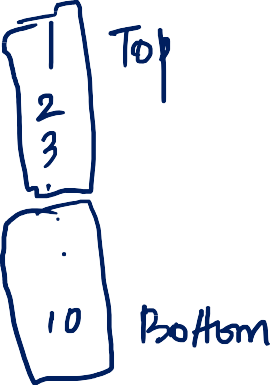 1 Top
2
3
.
.
.
10 Bottom